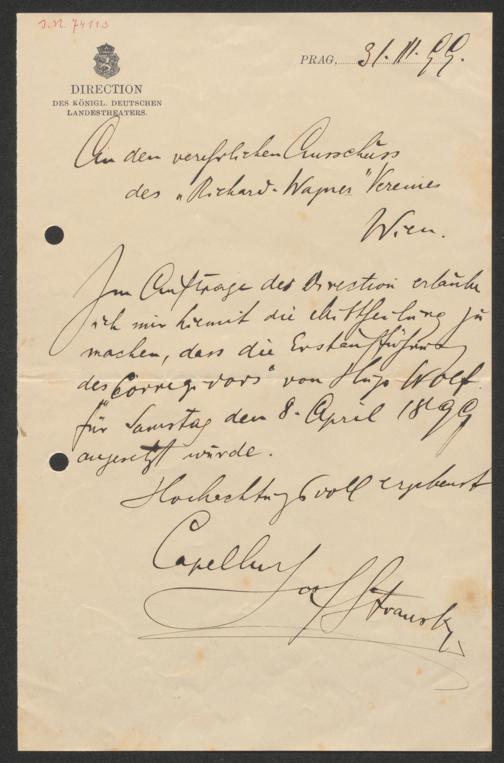 I.N. 74113
DIRECTION
DES KÖNIGL. DEUTSCHEN
LANDESTHEATERS.
PRAG, 31. III. 99.
An den verehrlichen Ausschuss
des „Richard-Wagner" Vereines
Wien.
Im Auftrage der Direction erlaube
ich mir hiemit die Mittheilung zu
machen, dass die Erstaufführung
des „Corregidors" von Hugo Wolf
für Samstag den 8. April 1899
angesetzt wurde.
Hochachtungsvoll ergebenst
Capellm
Josef Stransky